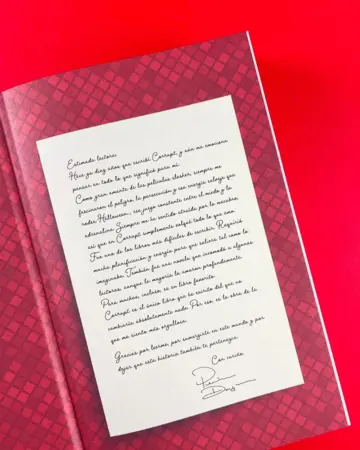 Estimada lectora:
Hace ya diez años que escribí Corrupt, y aún me emociona
pensar en todo lo que significó para mí.
Como gran amante de las películas slasher, siempre me
fascinaron el peligro, la persecución y esa energía salvaje que
rodea Halloween... ese juego constante entre el miedo y la
adrenalina. Siempre me he sentido atraída por las máscaras,
así que en Corrupt simplemente volqué todo lo que amo.
Fue uno de los libros más difíciles de escribir. Requirió
mucha planificación y energía para que saliera tal como lo
imaginaba. También fue una novela que incomodó a algunas
lectoras, aunque la mayoría la amaron profundamente.
Para muchas, incluso, es un libro favorito.
Corrupt es el único libro que he escrito del que no
cambiaría absolutamente nada. Por eso, es la obra de la
que me siento más orgullosa.
Gracias por leerme, por sumergirte en este mundo y por
dejar que esta historia también te pertenezca.
Con cariño,